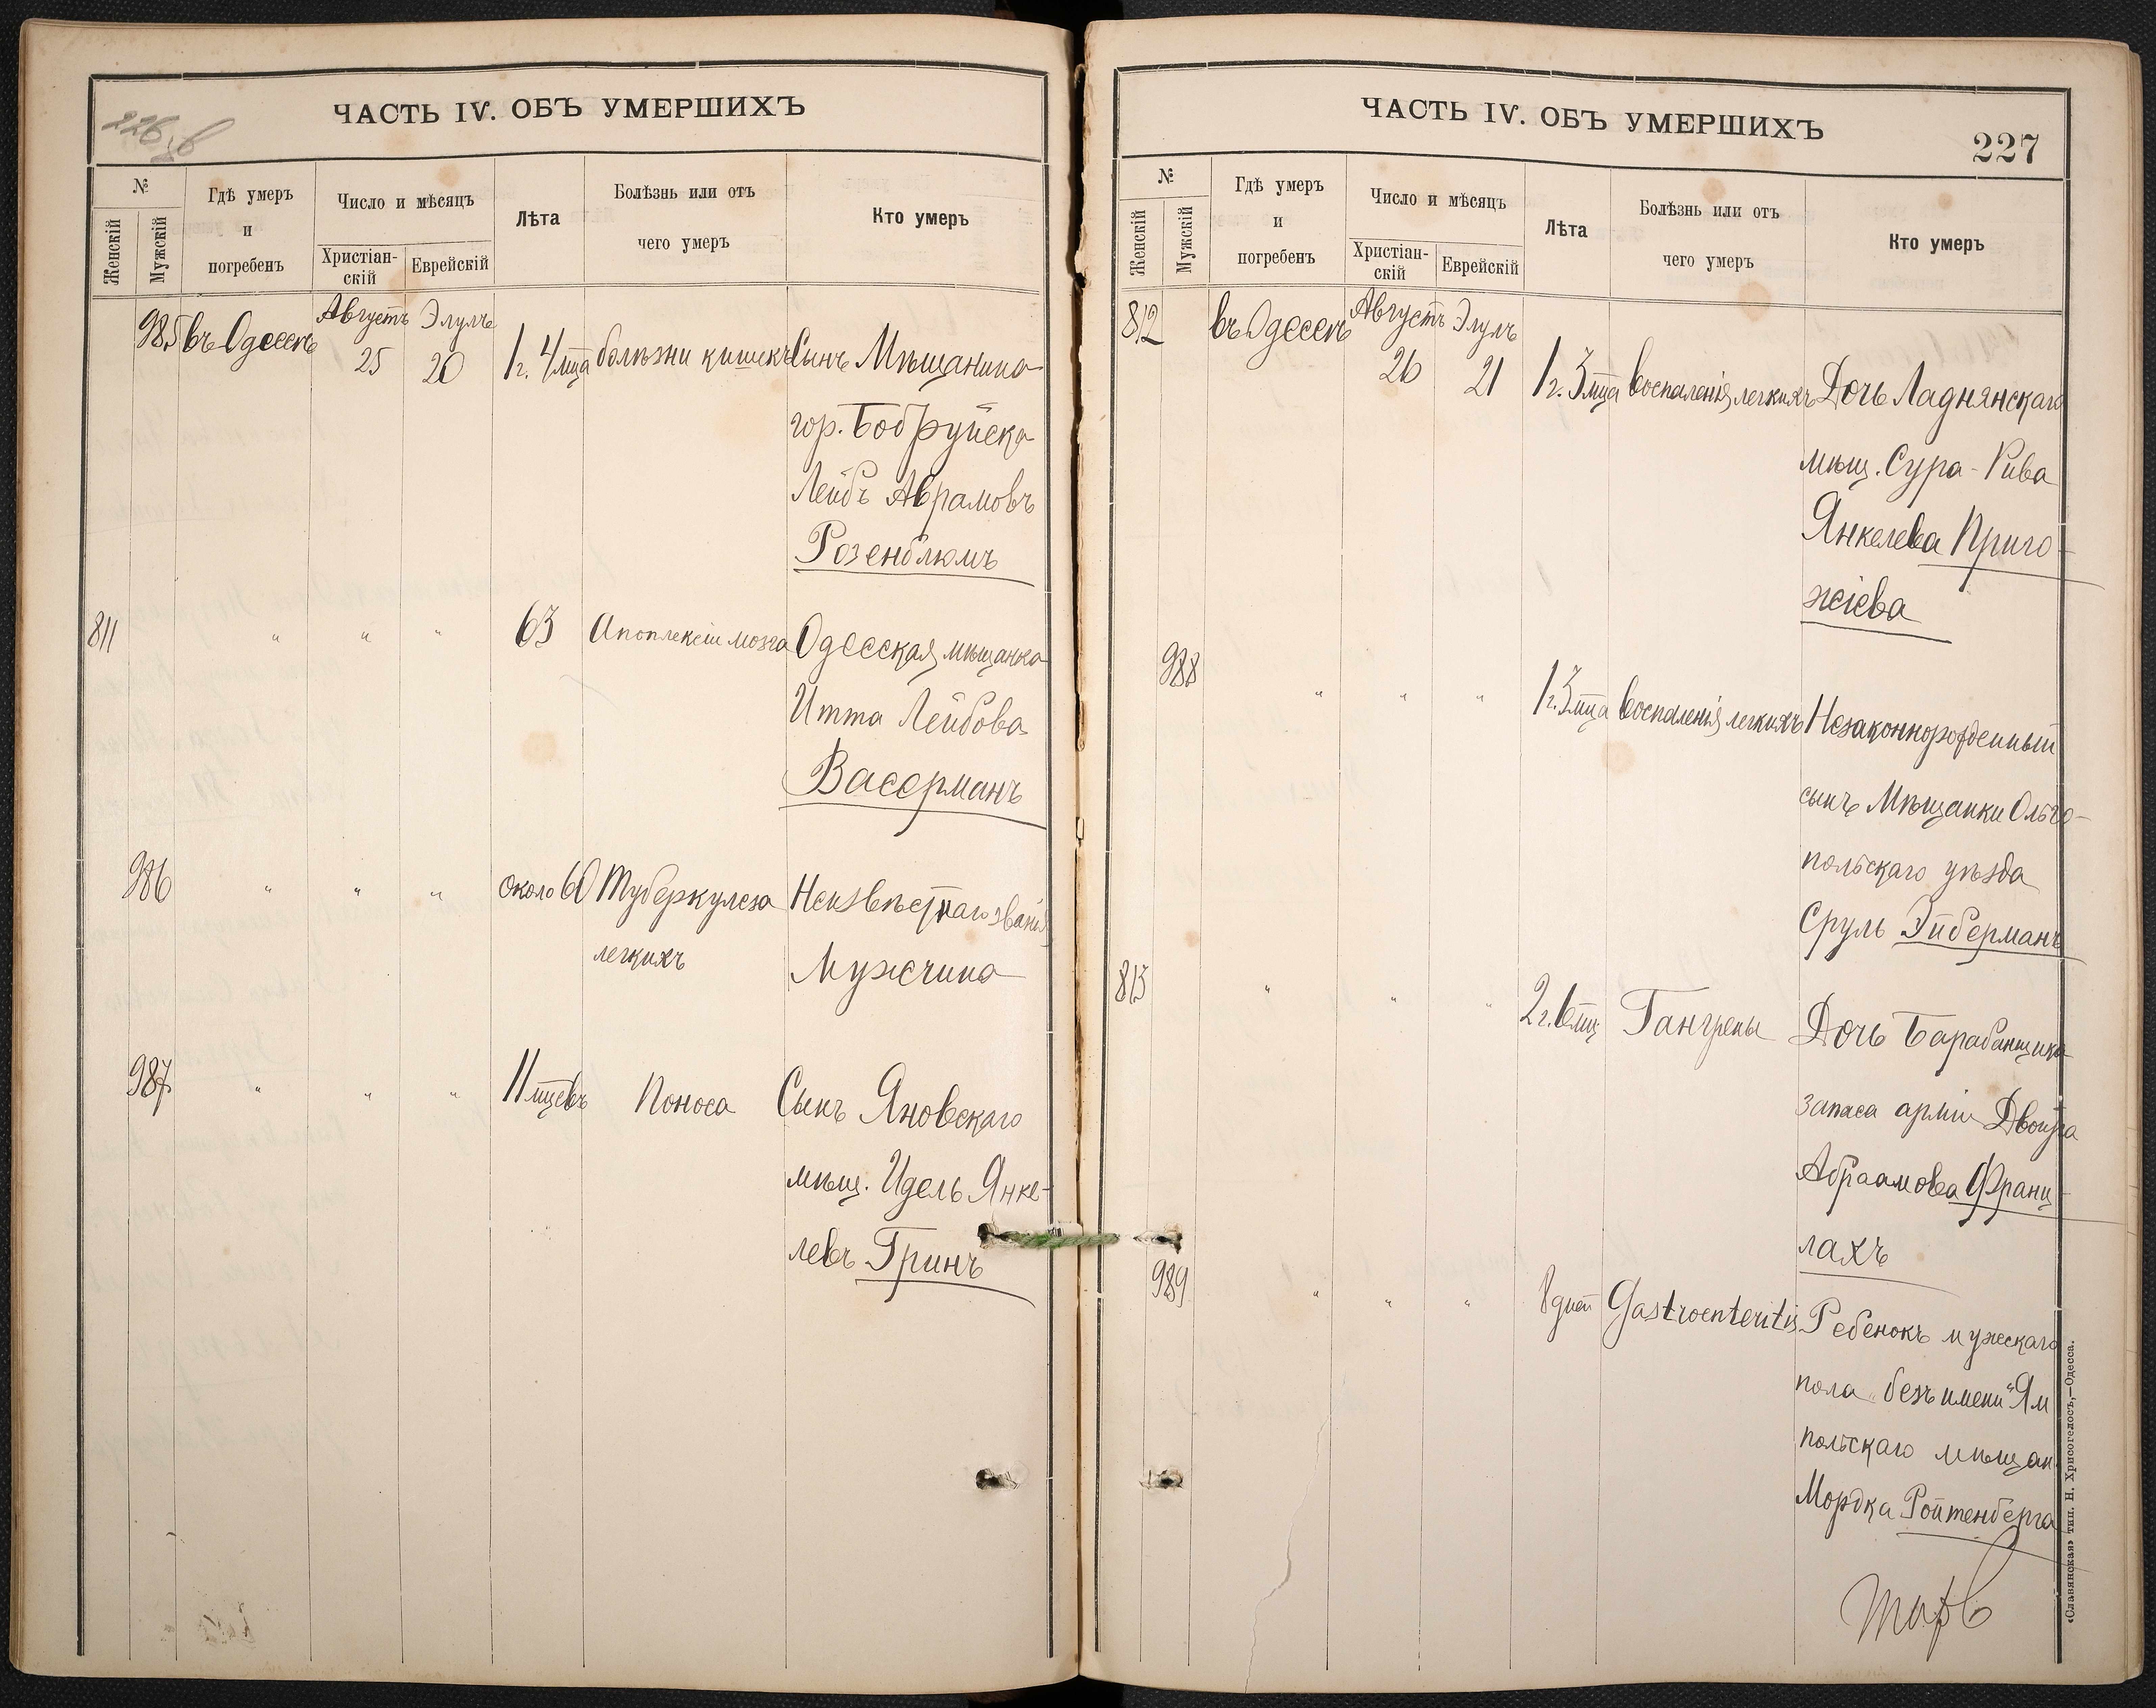 226 в
ЧАСТЬ IV. ОБЪ УМЕРШИХЪ
№
Женскій
Мужскій
Гдѣ умеръ
и
погребенъ
Число и мѣсяцъ
Христіан-
скій
Еврейскій
Лѣта
Болѣзнь или отъ
чего умеръ
Кто умеръ
985 въ Одессѣ Августъ 25 Элулъ 20 1 г. 4 мца болѣзни кишекъ Сынъ Мѣщанина
гор. Бобруйска
Лейбъ Аврамовъ
Розенблюмъ
811 " " " 63 Апоплексіи мозга Одесская мѣщанка
Итта Лейбова
Васерманъ
986 " " " около 60 Туберкулеза Неизвѣстнаго званія
легкихъ Мужчина
987 " " " 11 мцевъ Поноса Сынъ Яновскаго
мѣщ. Идель Янке-
левъ Гринъ
ЧАСТЬ IV. ОБЪ УМЕРШИХЪ
227
№
Женскій
Мужскій
Гдѣ умеръ
и
погребенъ
Число и мѣсяцъ
Христіан-
скій
Еврейскій
Лѣта
Болѣзнь или отъ
чего умеръ
Кто умеръ
812 въ Одессѣ Августъ 26 Элулъ 21 1 г. 3 мца воспаленія легкихъ Дочь Ладнянскаго
мѣщ. Сура-Рива
Янкелева Приго-
жіева
988 " " " 1 г. 3 мца воспаленія легкихъ Незаконнорожденный
сынъ Мѣщанки Ольго-
польскаго уѣзда
Сруль Эйберманъ
813 " " " 2 г. 6 мц. Гангрены Дочь Барабанщика
запаса арміи Двойра
Абраамова Франц-
лахъ
989 " " " 8 дней Gastroenteritis Ребенокъ мужескаго
пола "безъ имени" Ям
польскаго мѣщан
Мордка Ройтенберга
«Славянская» тип. Н. Хрисогелосъ,—Одесса.